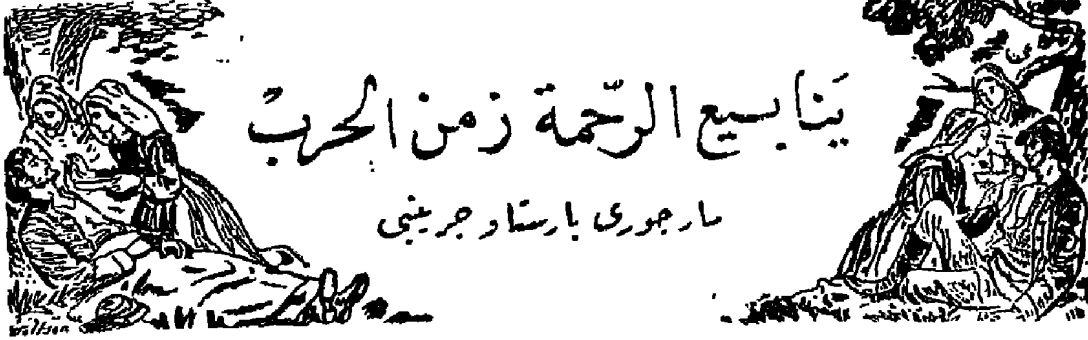 يَنابيع الرّحمة زمن الحرب
مارجوري بارستاو جرينبى